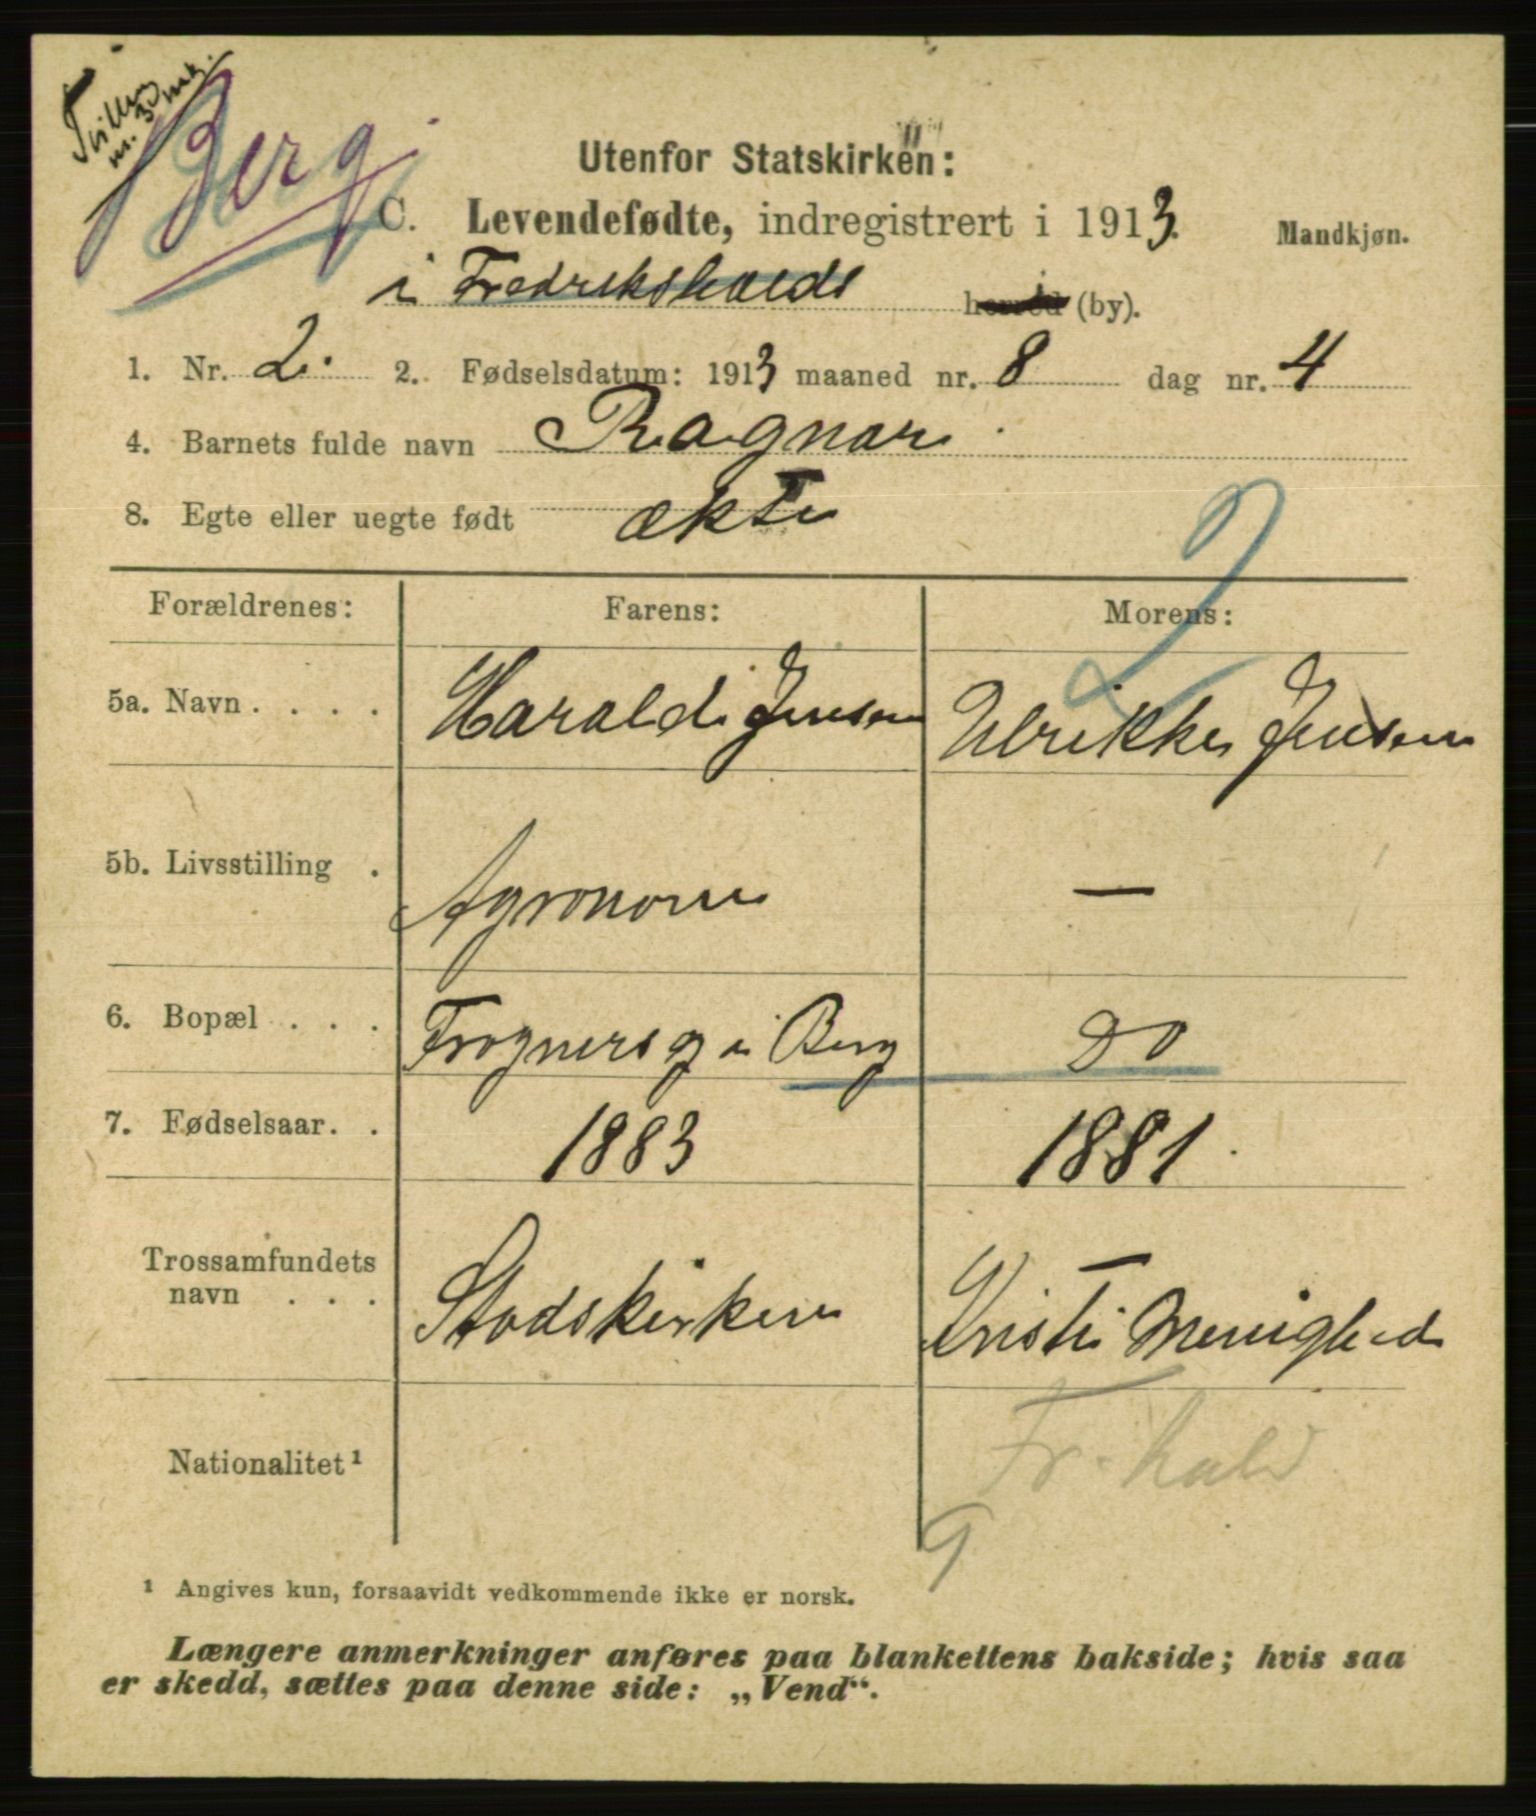 Berg
Utenfor Statskirken:
C. Levendefødte, indregistrert i 1913. Mandkjøn.
i Fredrikshalds (by).
1. Nr. 2. 2. Fødselsdatum: 1913 maaned nr. 8 dag nr. 4
4. Barnets fulde navn Ragnar
8. Egte eller uegte født ækte
2
Forældrenes: Farens: Morens:
5a. Navn . . . . Harald Jensen Ulrikke Jensen
5b. Livsstilling . Agronom —
6. Bopæl . . . Frogners g i Berg Do
7. Fødselsaar. . 1883 1881.
Trossamfundets
navn . . . Stadskirken Kristi Menighed
Nationalitet¹ Fr.hald
¹ Angives kun, forsaavidt vedkommende ikke er norsk.
Længere anmerkninger anføres paa blankettens bakside; hvis saa
er skedd, sættes paa denne side: „Vend“.